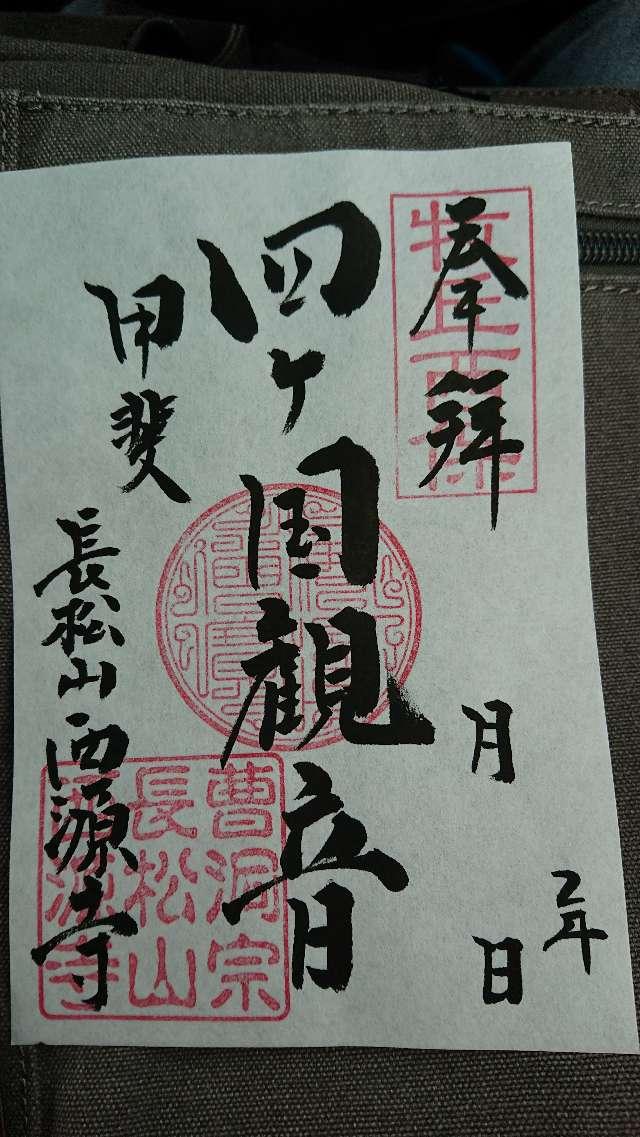 奉拝
2年
月
日
四ヶ国観音
甲斐
長松山西源寺
曹洞宗
長松山
西源寺